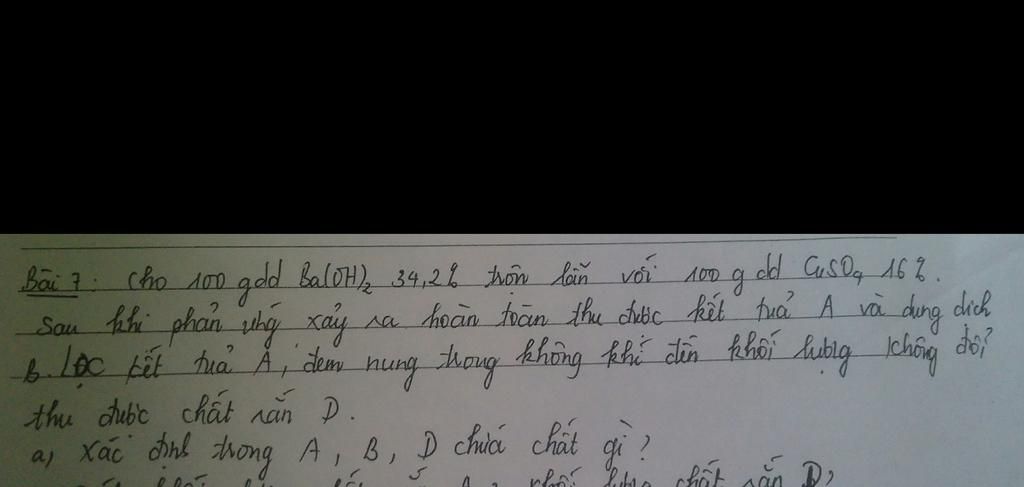 Bài 7: Cho 100 g dd Ba(OH)₂ 34,2% trộn lẫn với 100 g dd CuSO₄ 16%.
Sau khi phản ứng xảy ra hoàn toàn thu được kết tủa A và dung dịch
B. Lọc kết tủa A, đem nung trong không khí đến khối lượng không đổi
thu được chất rắn D.
a, Xác định trong A, B, D chứa chất gì?
A, khối lượng chất rắn D,